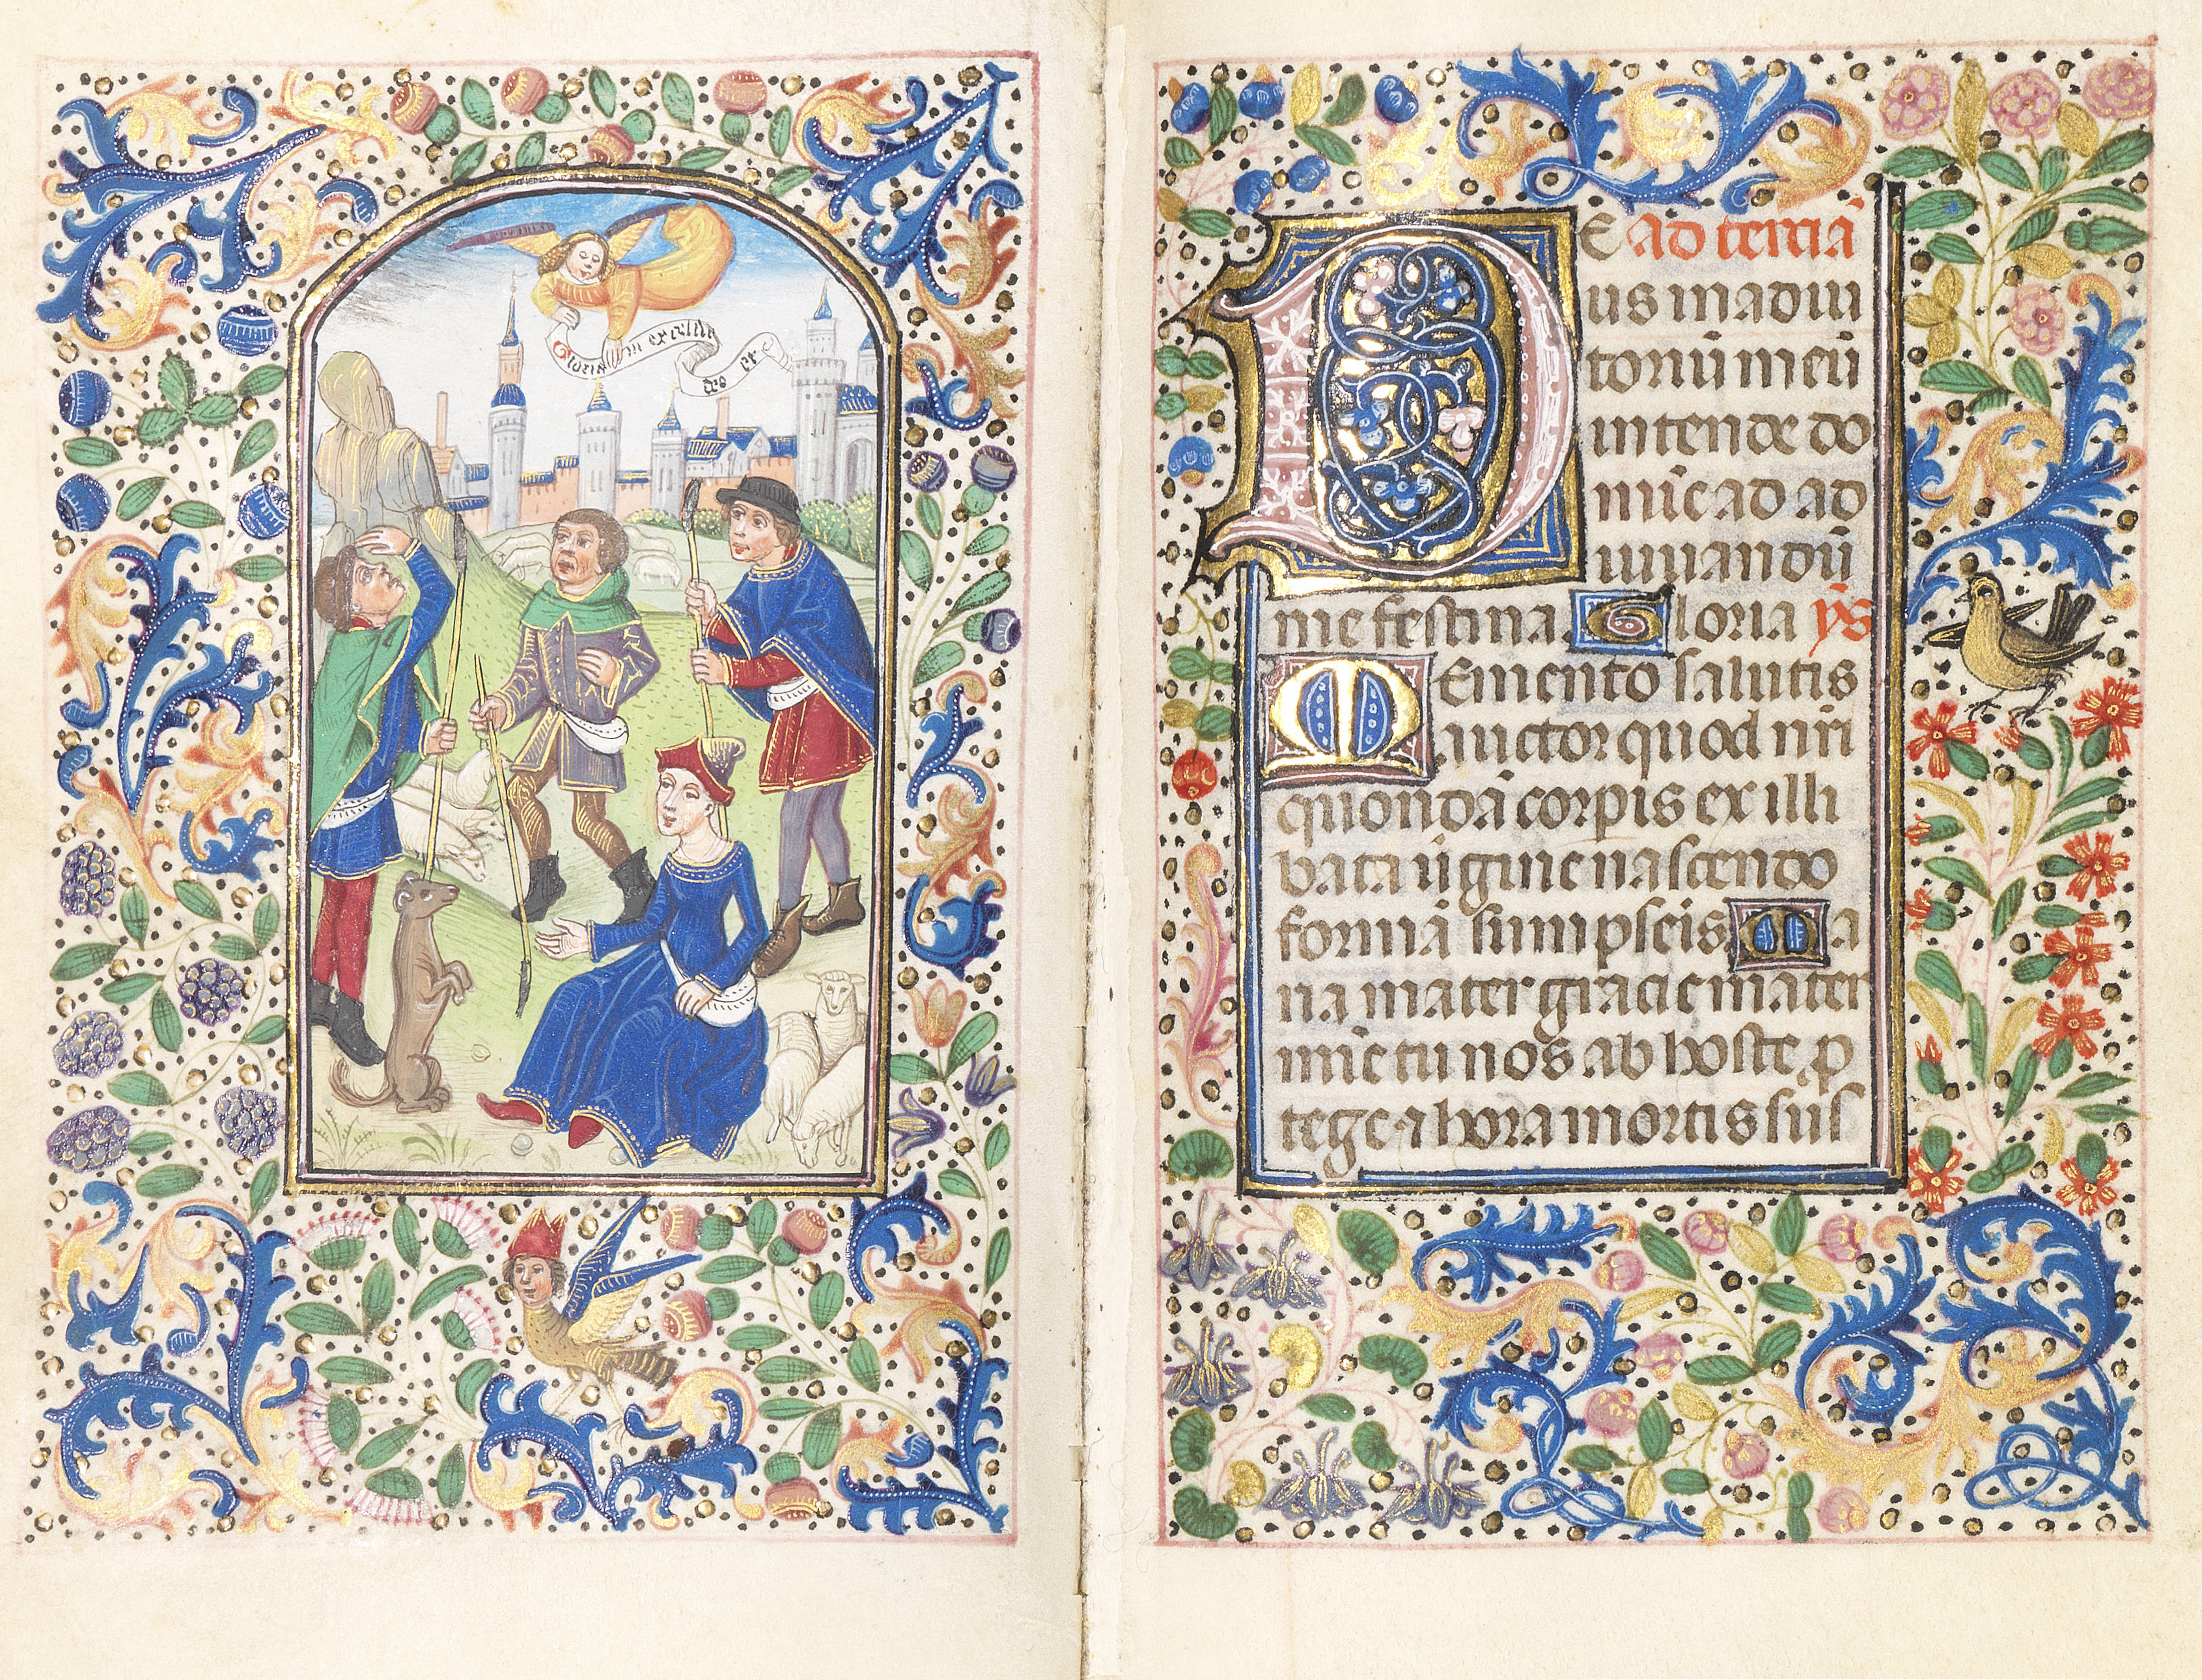 Gloria in excelsis
deo et
DE ad terciā
us in adiu
toriū meū
intende do
mīe ad ad
iuuandū
me festina. Gloria ps
Memento salutis
auctor quod nr̄i
quondā corpīs ex illi
bata ūgine nascendo
formā sumpseis Ma
ria mater gracie mater
mīe tu nos ab hoste p̱
tege ⁊ hora mortis sus